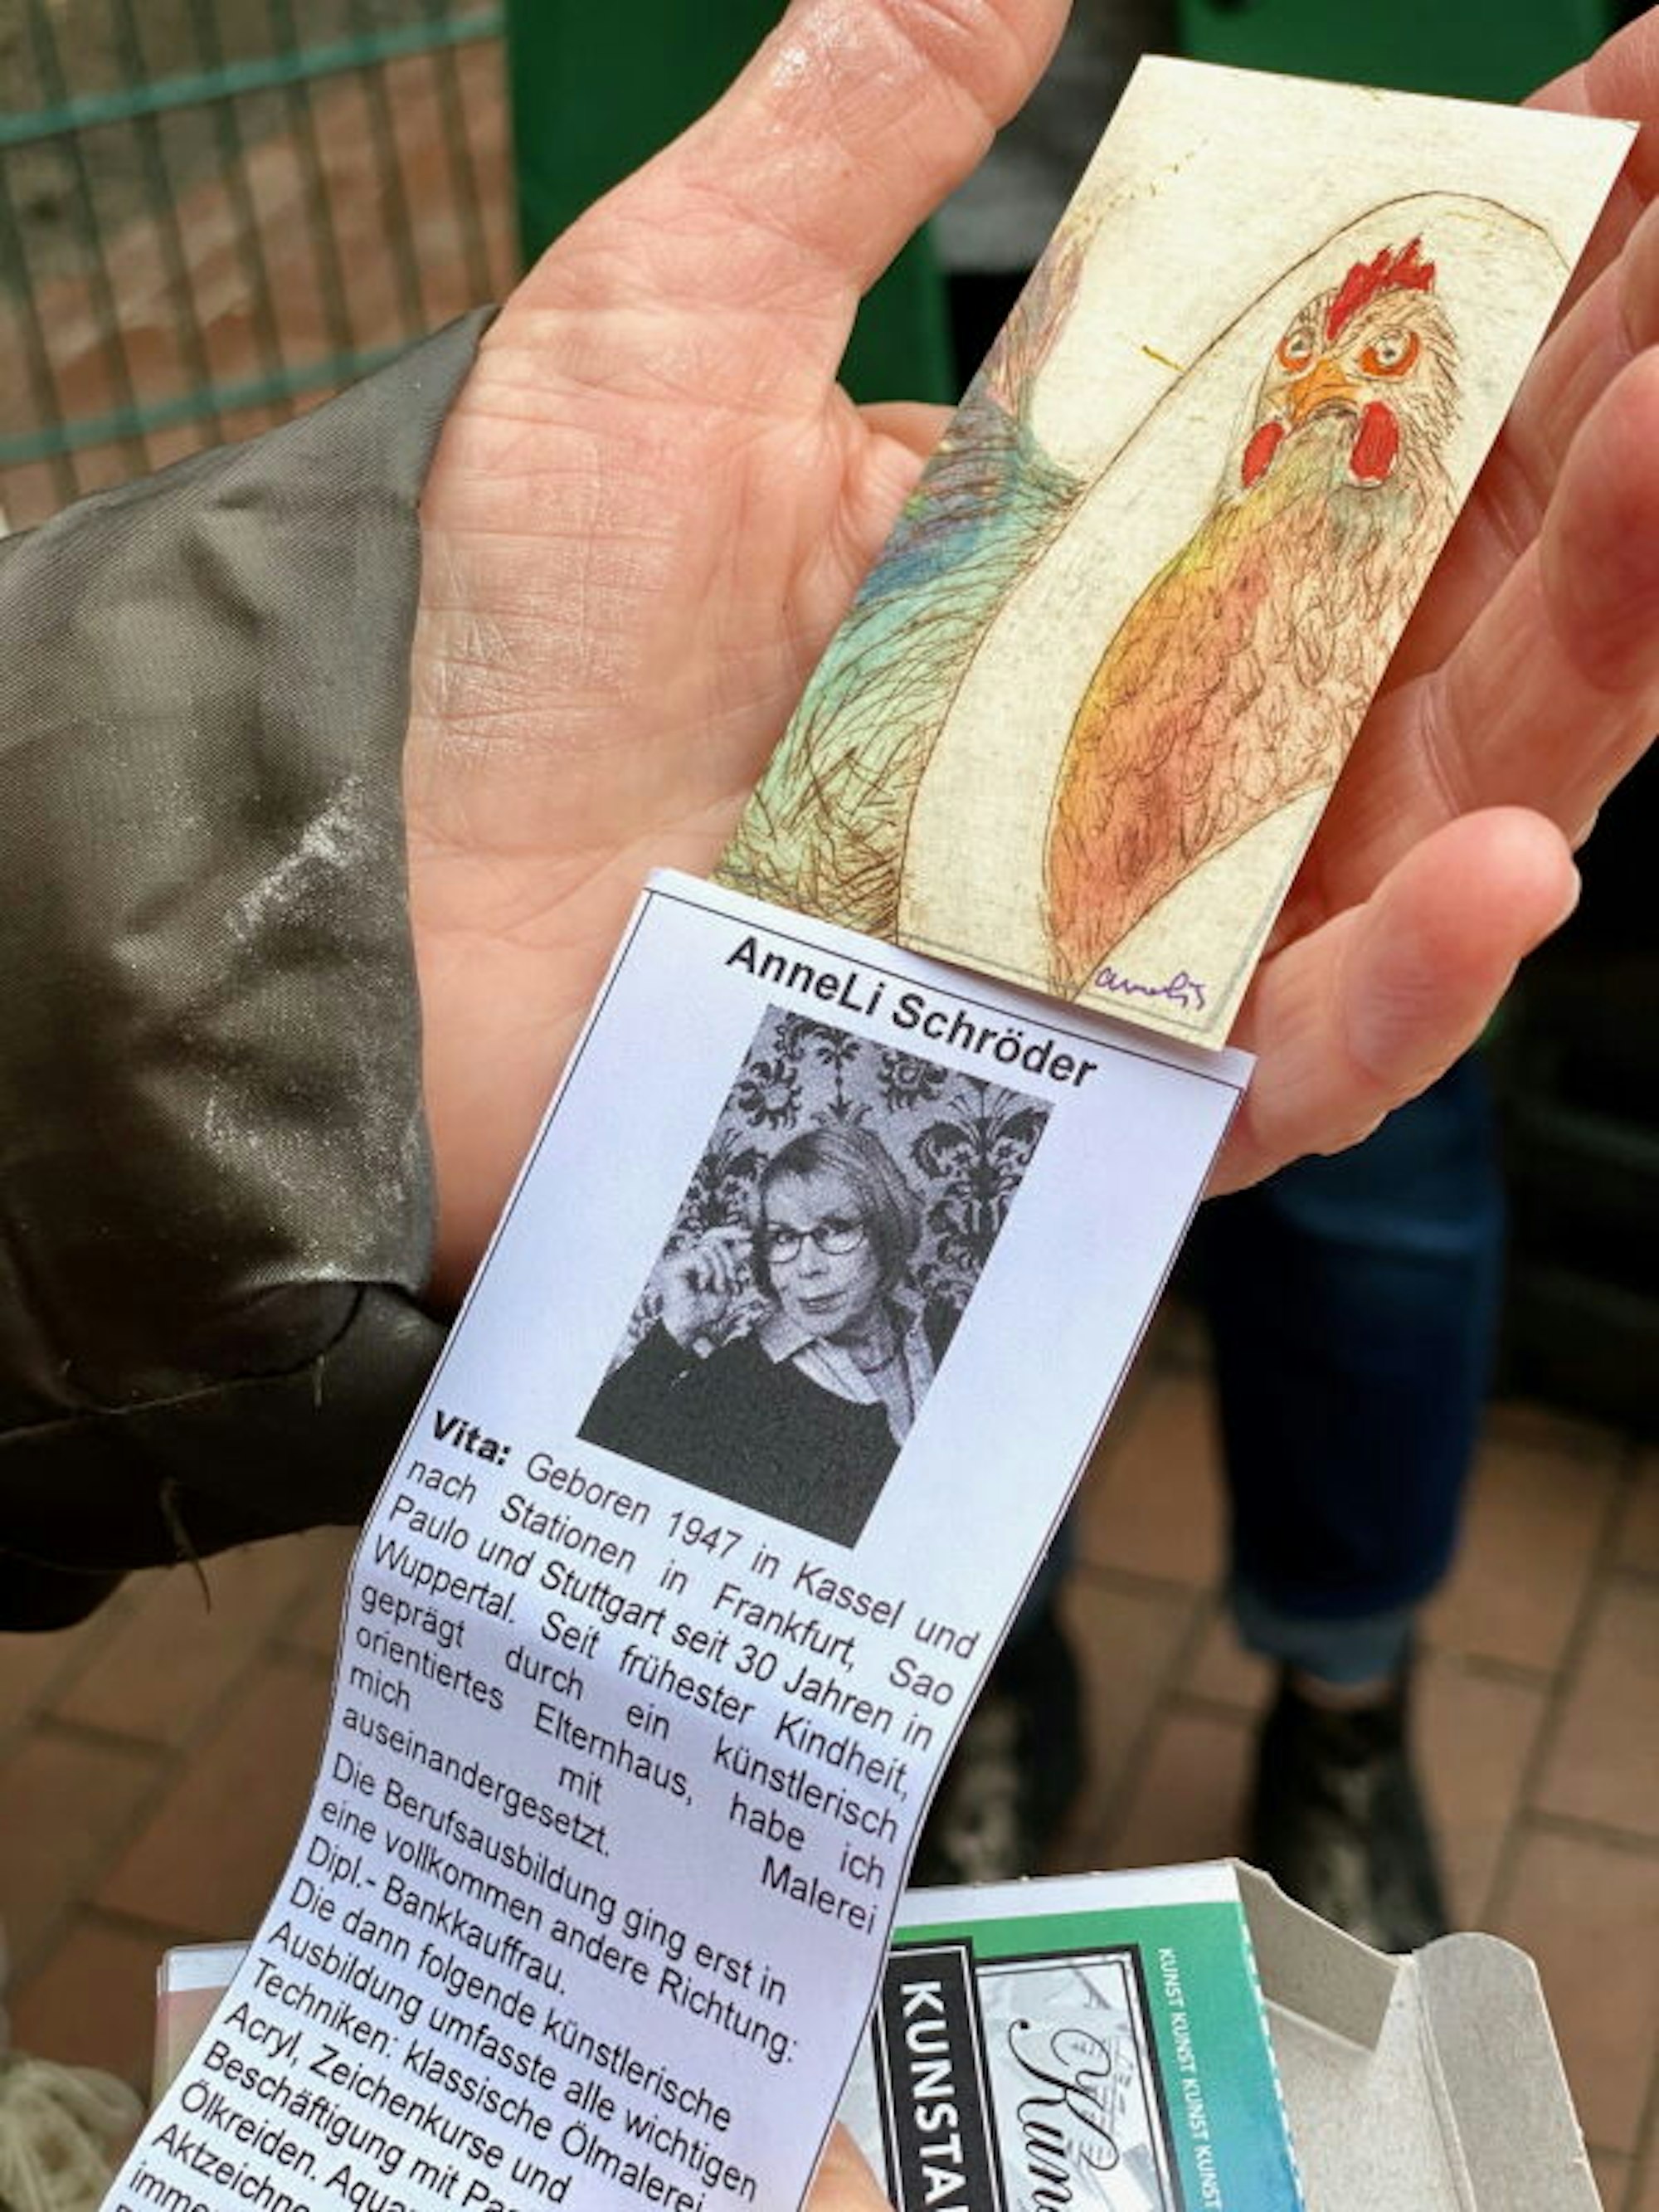 AnneLi Schröder
Vita: Geboren 1947 in Kassel und
nach Stationen in Frankfurt, Sao
Paulo und Stuttgart seit 30 Jahren in
Wuppertal. Seit frühester Kindheit,
geprägt durch ein künstlerisch
orientiertes Elternhaus, habe ich
mich mit Malerei
auseinandergesetzt.
Die Berufsausbildung ging erst in
eine vollkommen andere Richtung:
Dipl.- Bankkauffrau.
Die dann folgende künstlerische
Ausbildung umfasste alle wichtigen
Techniken: klassische Ölmalerei,
Acryl, Zeichenkurse und
Beschäftigung mit
Ölkreiden.
KUNST KUNST KUNST KUNST